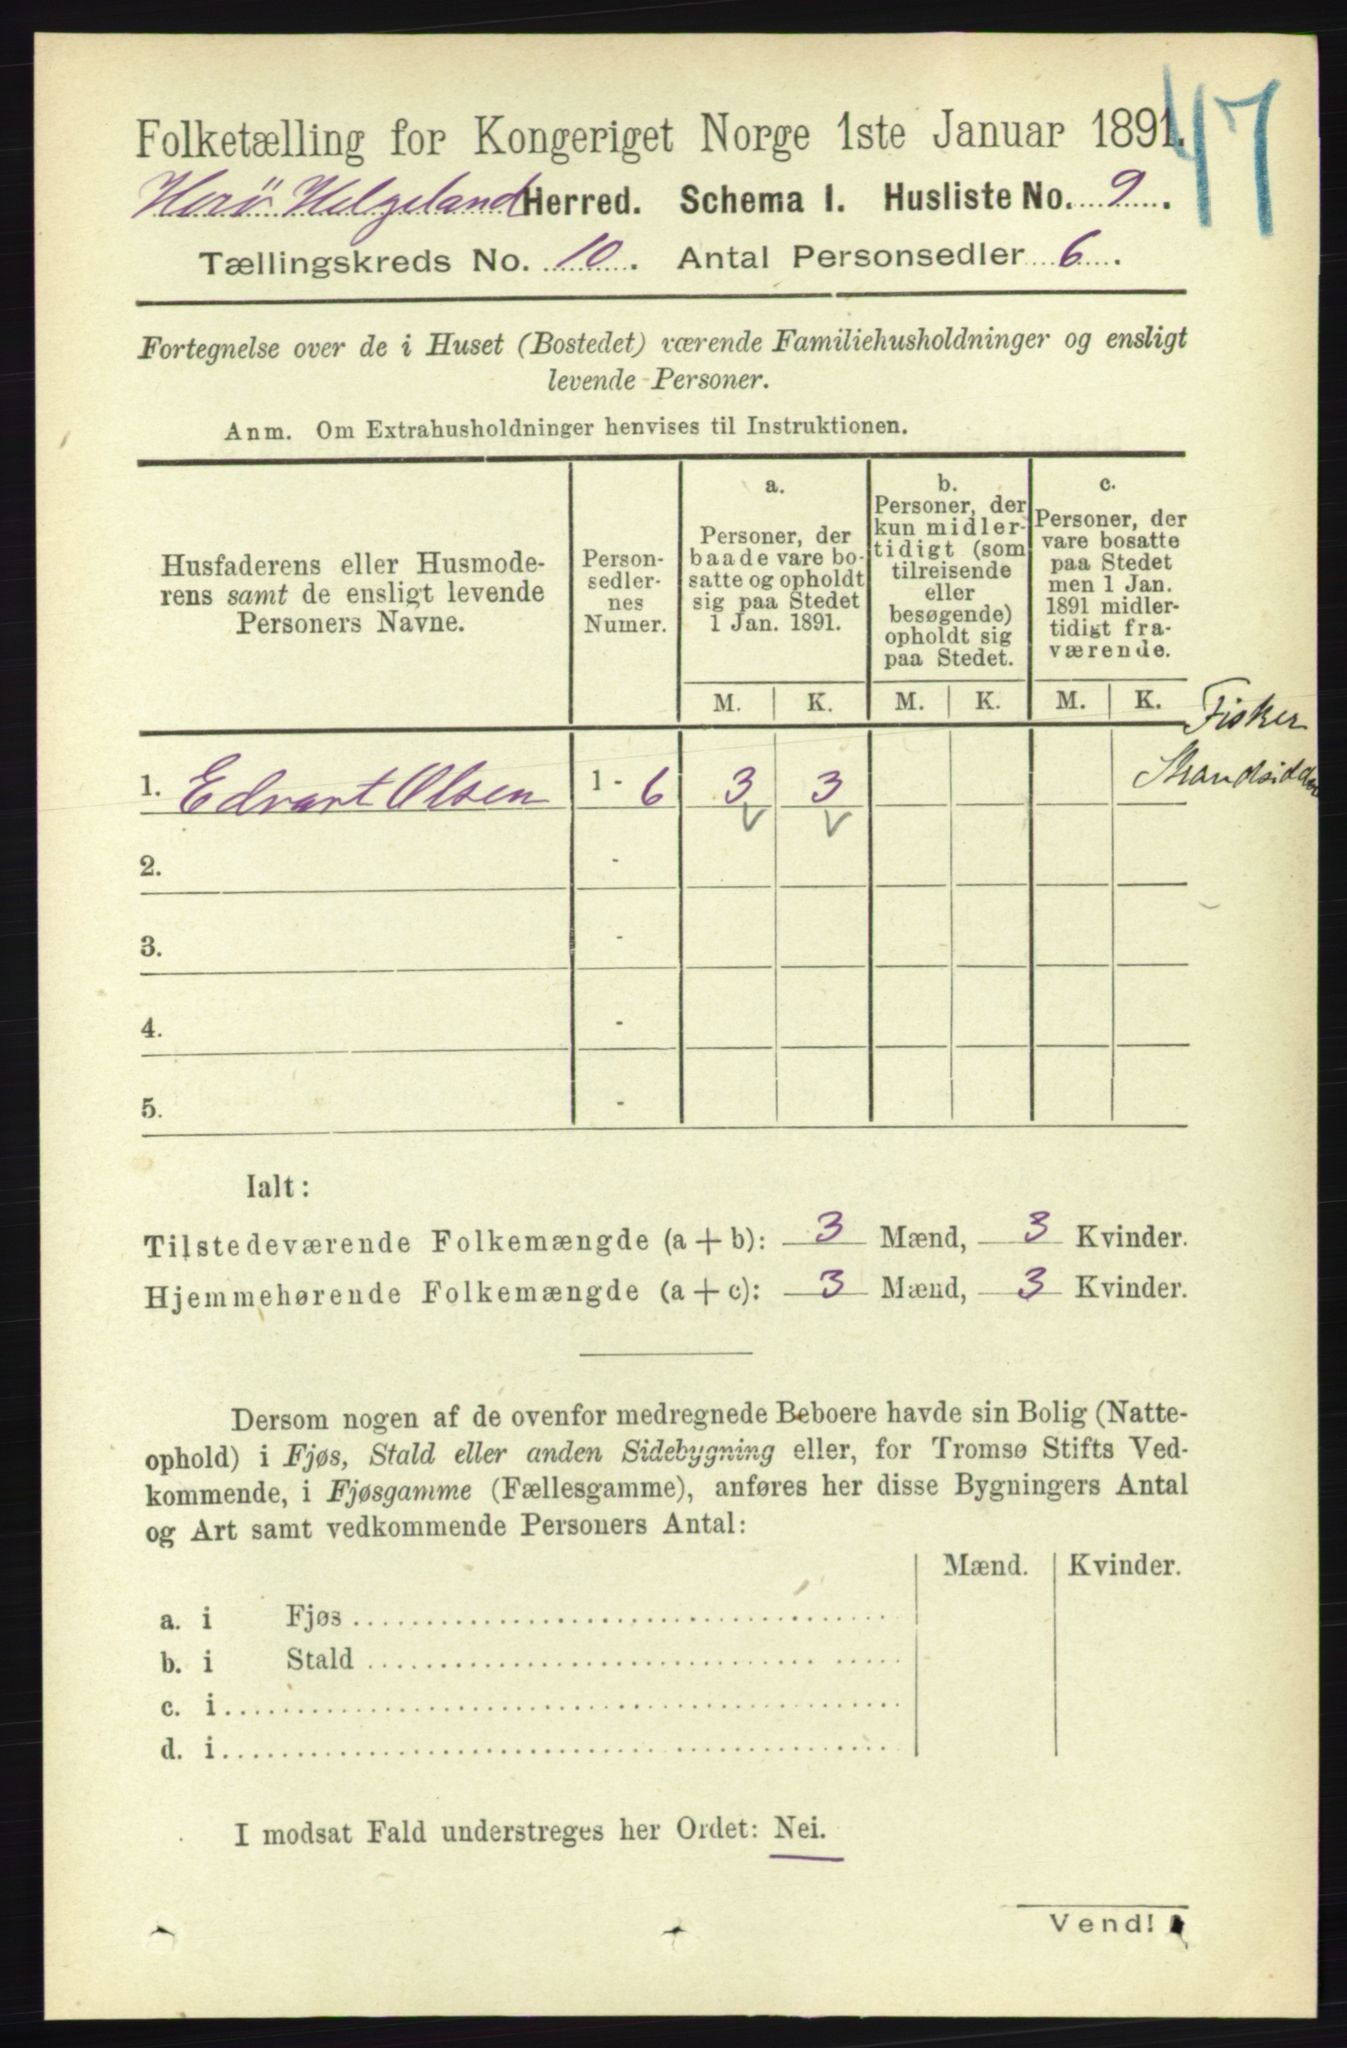 47
Folketælling for Kongeriget Norge 1ste Januar 1891.
Herö Helgeland Herred. Schema 1. Husliste No. 9.
Tællingskreds No. 10. Antal Personsedler 6.
Fortegnelse over de i Huset (Bostedet) værende Familiehusholdninger og ensligt
levende Personer.
Anm. Om Extrahusholdninger henvises til Instruktionen.
Husfaderens eller Husmode-
rens samt de ensligt levende
Personers Navne.
Person-
sedler-
nes
Numer.
a.
Personer, der
baade vare bo-
satte og opholdt
sig paa Stedet
1 Jan. 1891.
b.
Personer, der
kun midler-
tidigt (som
tilreisende
eller
besøgende)
opholdt sig
paa Stedet.
c.
Personer, der
vare bosatte
paa Stedet
men 1 Jan.
1891 midler-
tidigt fra-
værende.
M. K. M. K. M. K.
Fisker
Strandsidder
1. Edvart Olsen 1 - 6 3 3
2. -
3. -
4. -
5. -
Ialt:
Tilstedeværende Folkemængde (a + b): 3 Mænd, 3 Kvinder.
Hjemmehørende Folkemængde (a + c): 3 Mænd, 3 Kvinder.
Dersom nogen af de ovenfor medregnede Beboere havde sin Bolig (Natte-
ophold) i Fjøs, Stald eller anden Sidebygning eller, for Tromsø Stifts Ved-
kommende, i Fjøsgamme (Fællesgamme), anføres her disse Bygningers Antal
og Art samt vedkommende Personers Antal:
Mænd. Kvinder.
a. i Fjøs
b. i Stald
c. i
d. i
I modsat Fald understreges her Ordet: Nei.
Vend!